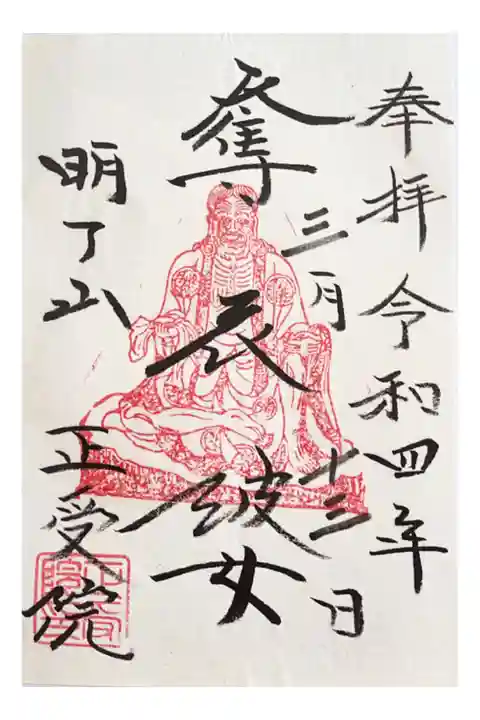 奉拝 令和四年
三月十三日
奪衣婆
明了山 正受院